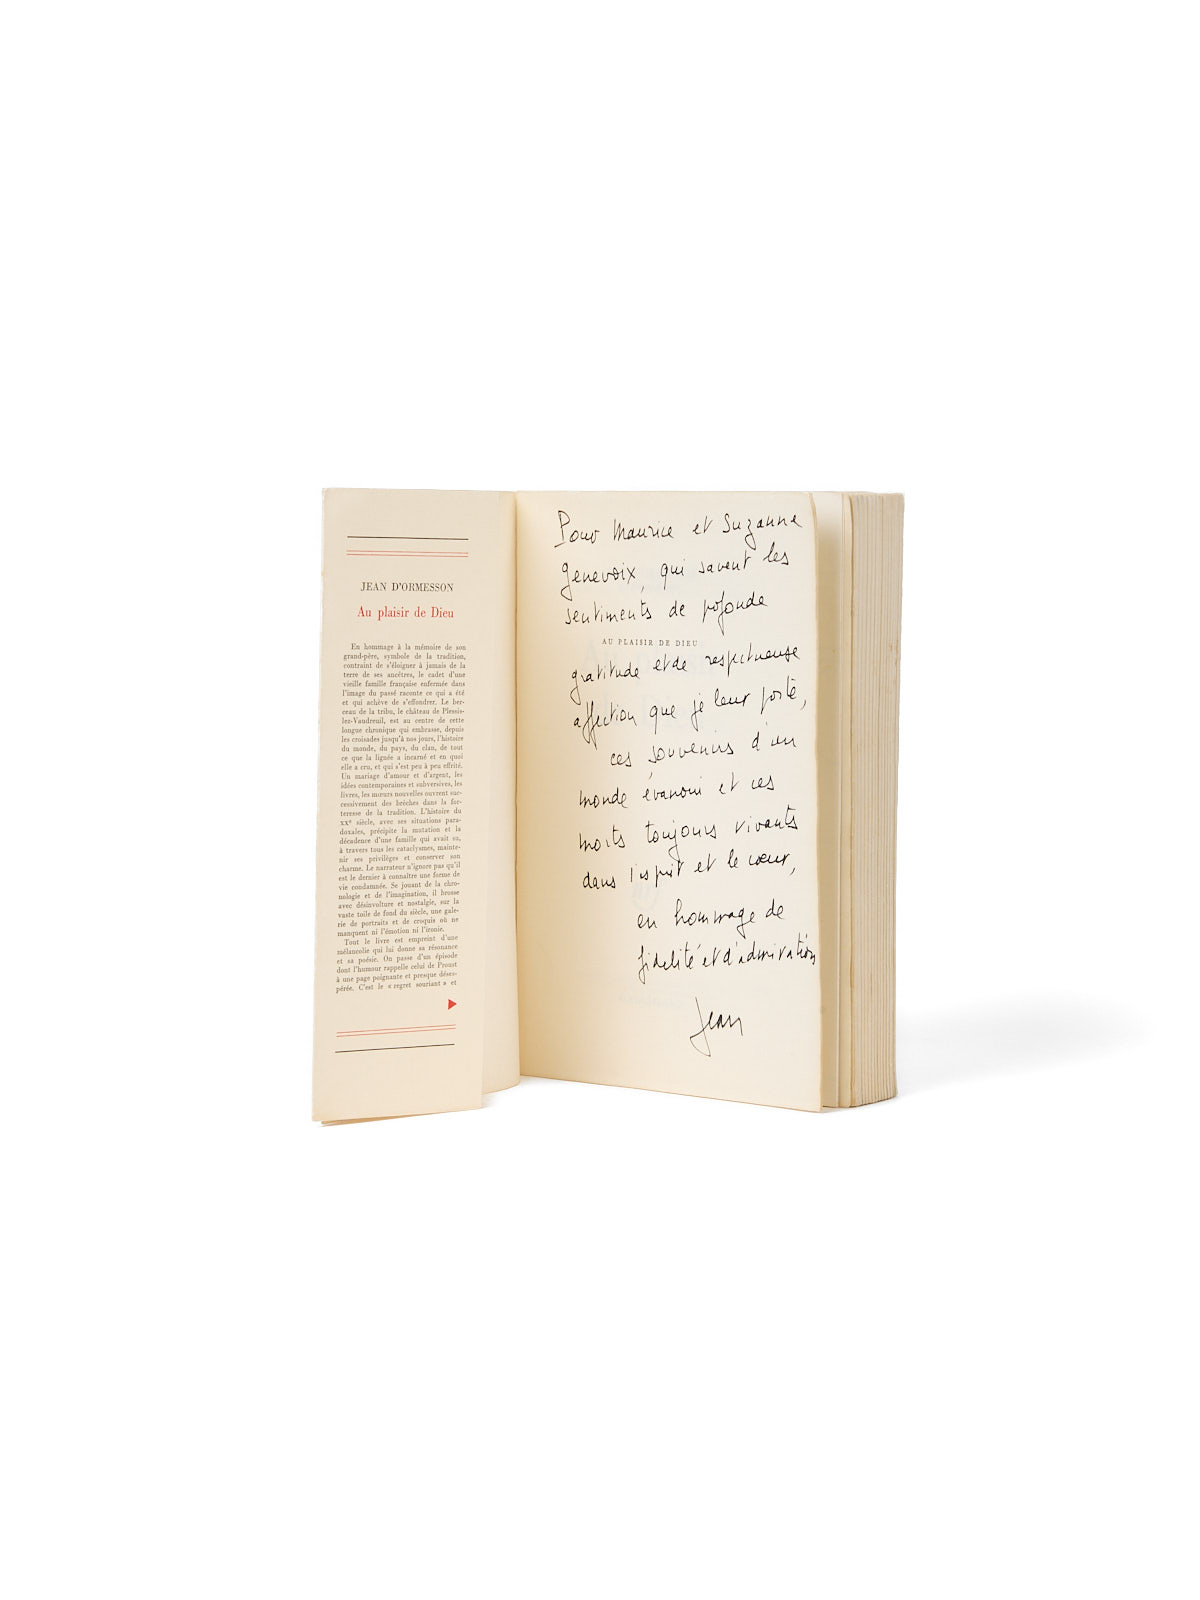 JEAN D'ORMESSON
Au plaisir de Dieu
En hommage à la mémoire de son
grand-père, symbole de la tradition,
contraint de s'éloigner à jamais de la
terre de ses ancêtres, le cadet d'une
vieille famille française enfermée dans
l'image du passé raconte ce qui a été
et qui achève de s'effondrer. Le ber-
ceau de la tribu, le château de Plessis-
lez-Vaudreuil, est au centre de cette
longue chronique qui embrasse, depuis
les croisades jusqu'à nos jours, l'histoire
du monde, du pays, du clan, de tout
ce que la lignée a incarné et en quoi
elle a cru, et qui s'est peu à peu effrité.
Un mariage d'amour et d'argent, les
idées contemporaines et subversives, les
livres, les mœurs nouvelles ouvrent suc-
cessivement des brèches dans la for-
teresse de la tradition. L'histoire du
XXe siècle, avec ses situations para-
doxales, précipite la mutation et la
décadence d'une famille qui avait su,
à travers tous les cataclysmes, mainte-
nir ses privilèges et conserver son
charme. Le narrateur n'ignore pas qu'il
est le dernier à connaître une forme de
vie condamnée. Se jouant de la chro-
nologie et de l'imagination, il brosse
avec désinvolture et nostalgie, sur la
vaste toile de fond du siècle, une gale-
rie de portraits et de croquis où ne
manquent ni l'émotion ni l'ironie.
Tout le livre est empreint d'une
mélancolie qui lui donne sa résonance
et sa poésie. On passe d'un épisode
dont l'humour rappelle celui de Proust
à une page poignante et presque déses-
pérée. C'est le « regret souriant » et
Pour Maurice et Suzanne
Genevoix, qui savent les
sentiments de profonde
AU PLAISIR DE DIEU
gratitude et de respectueuse
affection que je leur porte,
ces souvenirs d'un
monde évanoui et ces
morts toujours vivants
dans l'esprit et le cœur,
en hommage de
fidelité et d'admiration
Jean